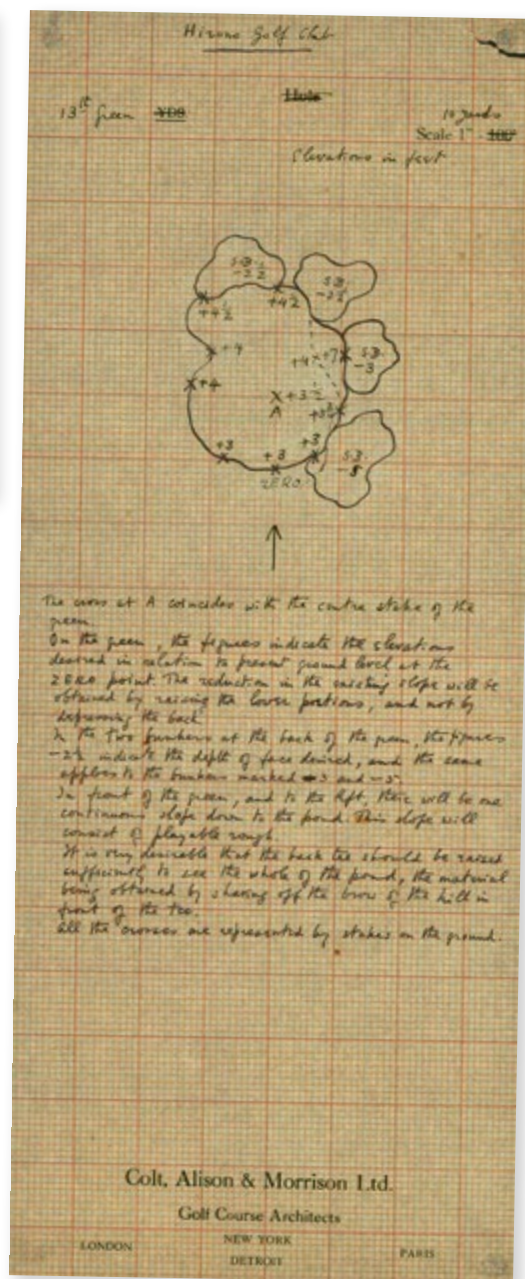 Hirono Golf Club
Hole
13th green YDS
10 yards
Scale 1" 100'
Elevations in feet
S.B. -2½
S.B. -2½
+4½
+4½
+4
+4 +7
S.B. -3
+4
+3½
A
+3
+3
+3
ZERO
S.B. -5
The cross at A coincides with the centre stake of the
green.
On the green, the figures indicate the elevations
desired in relation to present ground level at the
ZERO point. The reduction in the existing slope will be
obtained by raising the lower portions, and not by
depressing the back.
In the two bunkers at the back of the green, the figures
-2½ indicate the depth of face desired, and the same
applies to the bunkers marked -3 and -5.
In front of the green, and to the left, there will be one
continuous slope down to the pond. This slope will
consist of playable rough.
It is very desirable that the back tee should be raised
sufficiently to see the whole of the pond, the material
being obtained by shaving off the brow of the hill in
front of the tee.
All the crosses are represented by stakes on the ground.
Colt, Alison & Morrison Ltd.
Golf Course Architects
LONDON NEW YORK PARIS
DETROIT